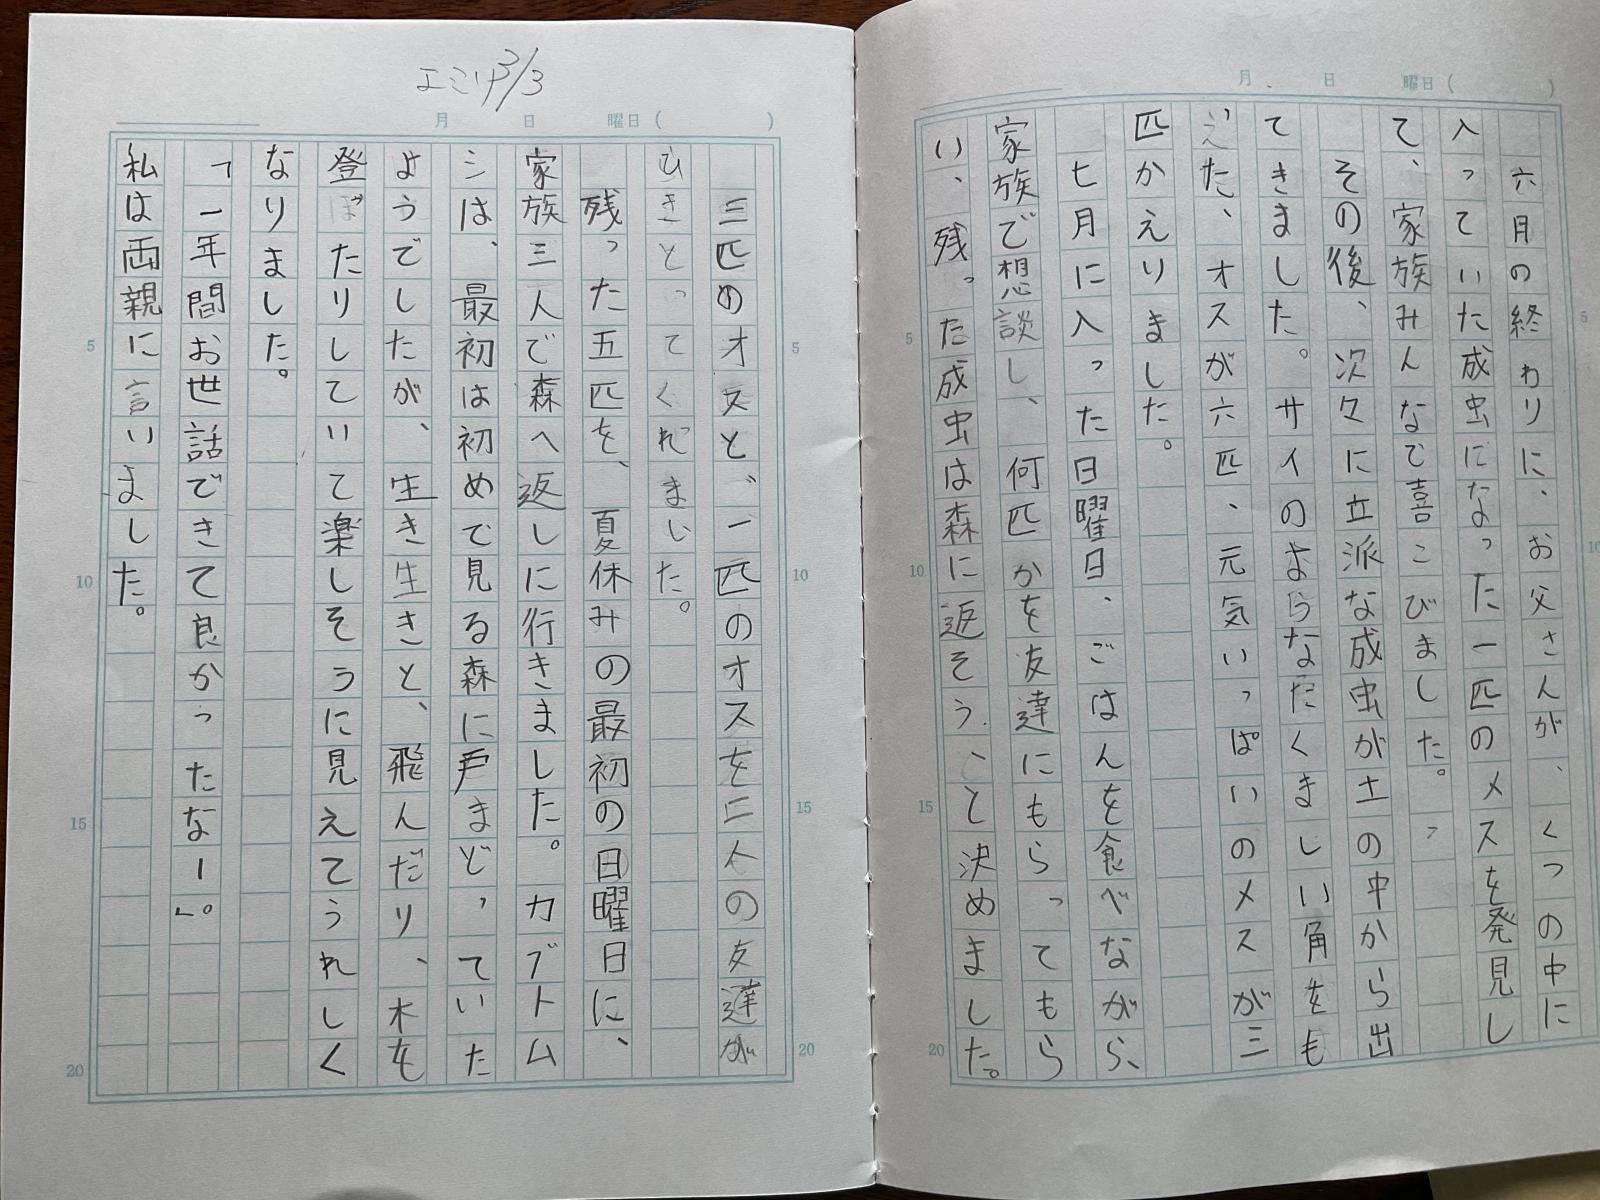 月　日　曜日（　）
六月の終わりに、お父さんが、くつの中に
入っていた成虫になった一匹のメスを発見し
て、家族みんなで喜こびました。
その後、次々に立派な成虫が土の中から出
てきました。サイのようなたくましい角をも
った、オスが六匹、元気いっぱいのメスが三
匹かえりました。
七月に入った日曜日、ごはんを食べながら、
家族で想談し、何匹かを友達にもらってもら
い、残った成虫は森に返そう、と決めました。
5
10
15
20
5
10
エミリ 3/3
月　日　曜日（　）
三匹のオスと、一匹のオスを二人の友達が
ひきとってくれました。
残った五匹を、夏休みの最初の日曜日に、
家族三人で森へ返しに行きました。カブトム
シは、最初は初めて見る森に戸まどっていた
ようでしたが、生き生きと、飛んだり、木を
登ぼたりしていて楽しそうに見えてうれしく
なりました。
「一年間お世話できて良かったなー」。
私は両親に言いました。
5
10
15
20
5
10
15
20